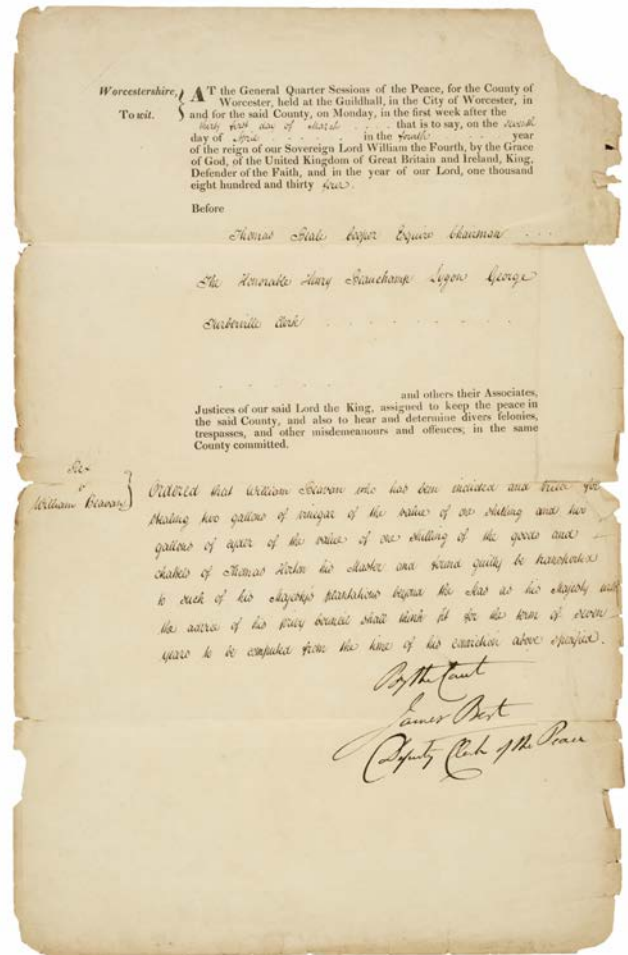 Worcestershire,
To wit.
AT the General Quarter Sessions of the Peace, for the County of
Worcester, held at the Guildhall, in the City of Worcester, in
and for the said County, on Monday, in the first week after the
thirty first day of March . . . . that is to say, on the seventh
day of April . . . . . . in the fourth . . . year
of the reign of our Sovereign Lord William the Fourth, by the Grace
of God, of the United Kingdom of Great Britain and Ireland, King,
Defender of the Faith, and in the year of our Lord, one thousand
eight hundred and thirty four.
Before
Thomas Beale Cooper Esquire Chairman . . .
The Honorable Henry Beauchamp Lygon George
Turberville Clerk . . . . . . . .
. . . . . and others their Associates,
Justices of our said Lord the King, assigned to keep the peace in
the said County, and also to hear and determine divers felonies,
trespasses, and other misdemeanours and offences, in the same
County committed.
Rex
v
William Beavan
Ordered that William Beavan who has been indicted and tried for
stealing two gallons of vinegar of the value of one shilling and two
gallons of cyder of the value of one shilling of the goods and
chattels of Thomas Horton his Master and found guilty be transported
to such of his Majesty's plantations beyond the Seas as his Majesty with
the advice of his privy council shall think fit for the term of seven
years to be computed from the time of his conviction above specified.
By the Court
James Best
Deputy Clerk of the Peace